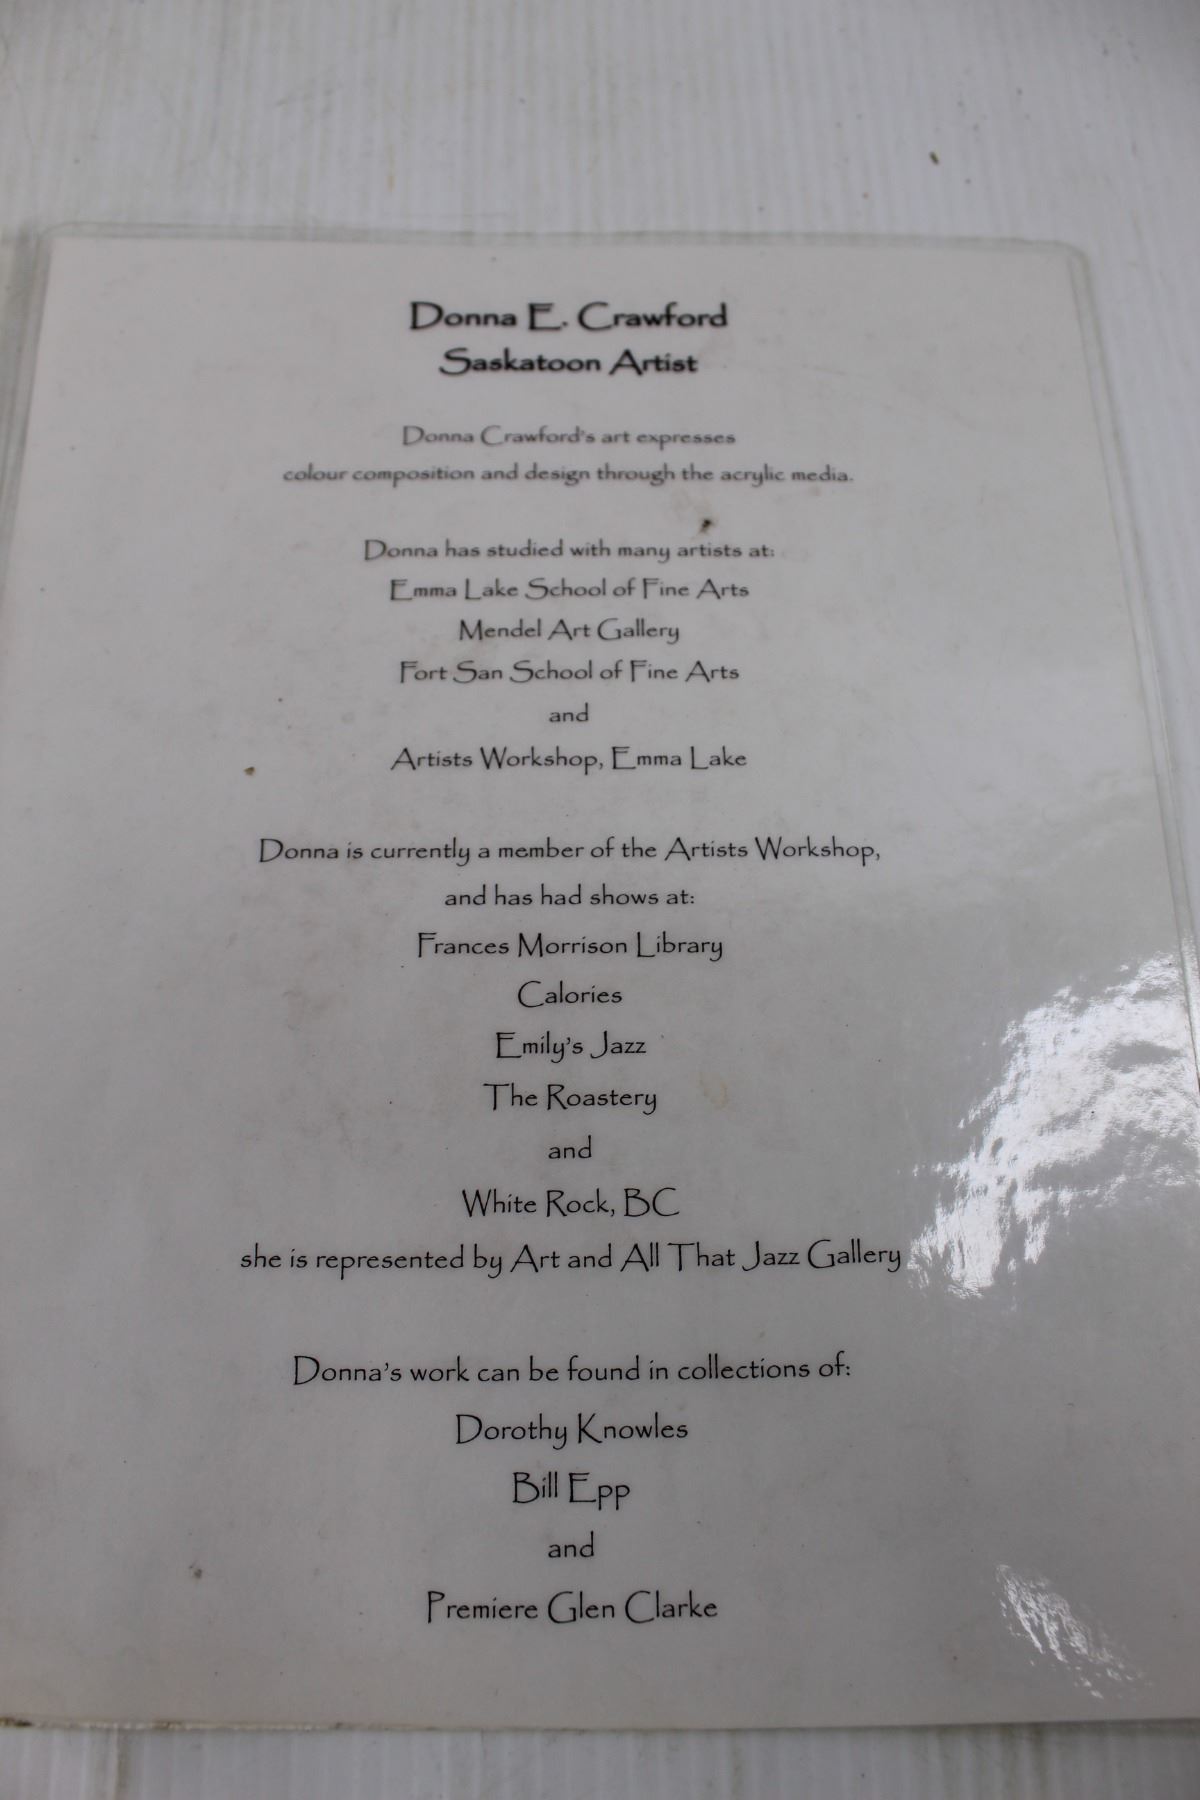 Donna E. Crawford
Saskatoon Artist
Donna Crawford's art expresses
colour composition and design through the acrylic media.
Donna has studied with many artists at:
Emma Lake School of Fine Arts
Mendel Art Gallery
Fort San School of Fine Arts
and
Artists Workshop, Emma Lake
Donna is currently a member of the Artists Workshop,
and has had shows at:
Frances Morrison Library
Calories
Emily's Jazz
The Roastery
and
White Rock, BC
she is represented by Art and All That Jazz Gallery
Donna's work can be found in collections of:
Dorothy Knowles
Bill Epp
and
Premiere Glen Clarke